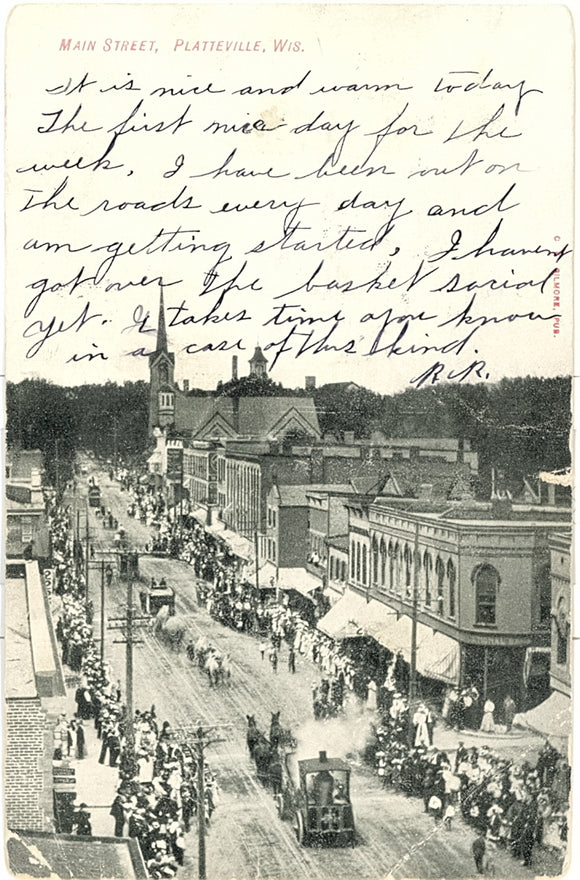 MAIN STREET, PLATTEVILLE, WIS.
It is nice and warm today
The first nice day for the
week. I have been out on
the roads every day and
am getting started, I havent
got over the basket social
yet. It takes time you know
in a case of this kind.
R.R.
GILMORE, PUB.